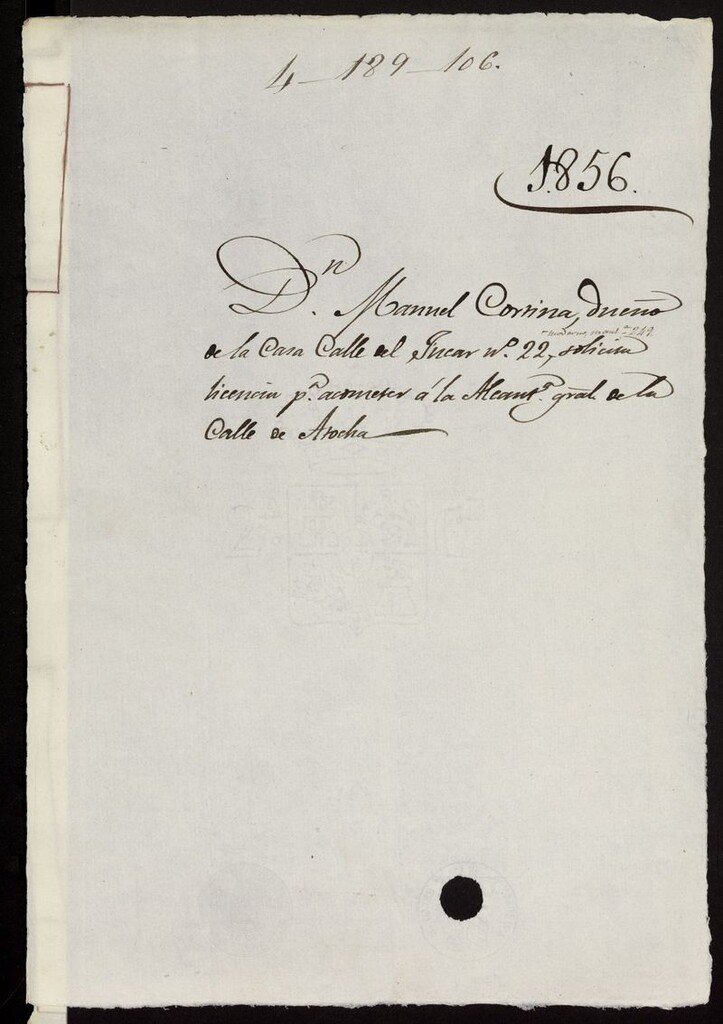 4-189-106.
1856.
Dn. Manuel Cortina, dueño
moderno, manz.a 249
de la Casa Calle del Jucar nº. 22, solicita
licencia pa. acometer á la Alcanta. gral. de la
Calle de Atocha